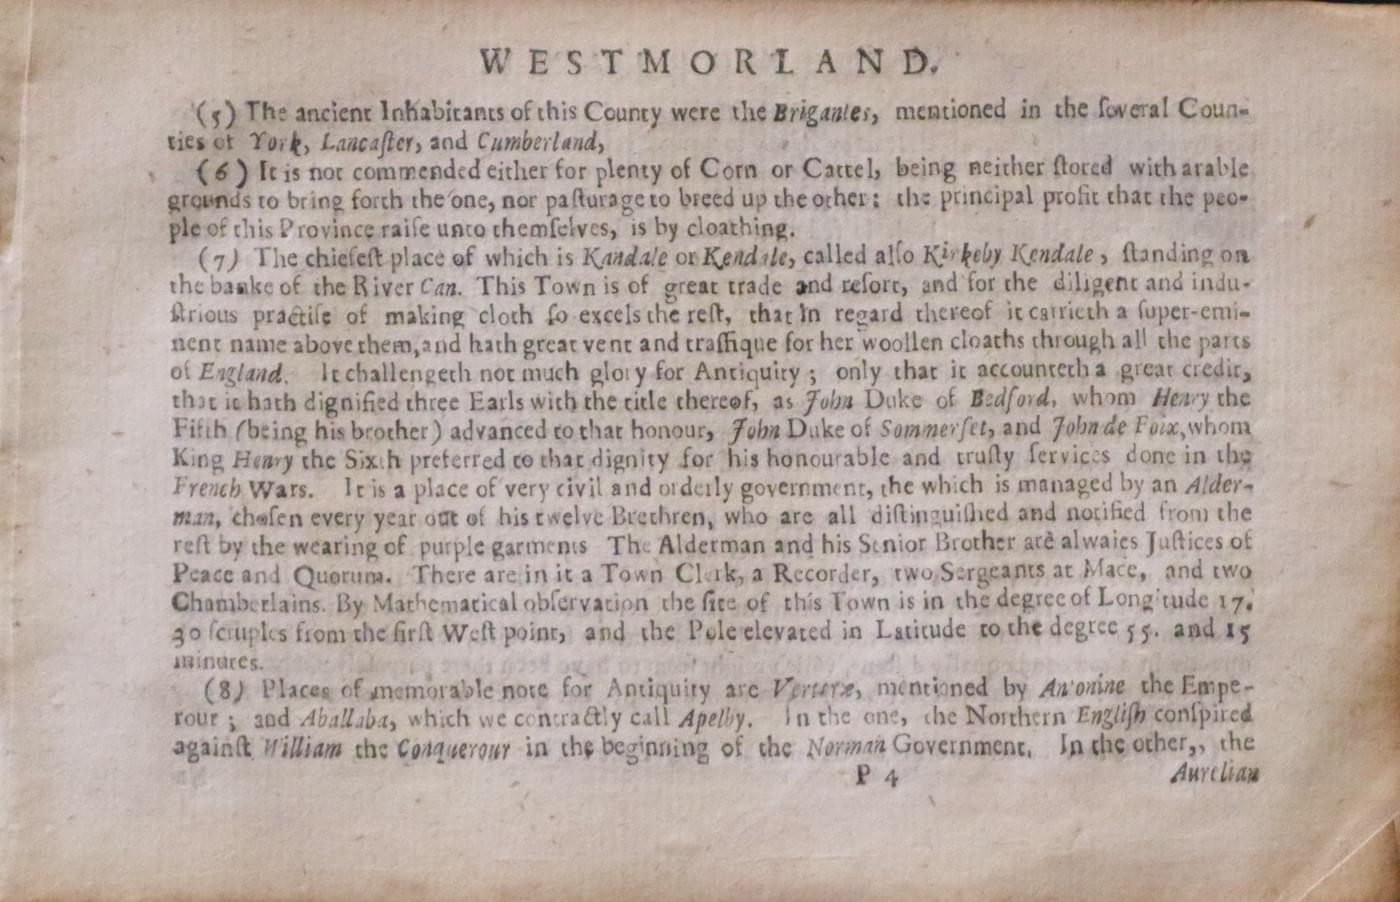 WESTMORLAND.
(5) The ancient Inhabitants of this County were the Brigantes, mentioned in the ſoveral Coun-
ties of York, Lancaſter, and Cumberland,
(6) It is not commended either for plenty of Corn or Cattel, being neither ſtored with arable
grounds to bring forth the one, nor paſturage to breed up the other: the principal profit that the peo-
ple of this Province raiſe unto themſelves, is by cloathing.
(7) The chiefeſt place of which is Kandale or Kendale, called alſo Kirkeby Kendale, ſtanding on
the banke of the River Can. This Town is of great trade and reſort, and for the diligent and indu-
ſtrious practiſe of making cloth ſo excels the reſt, that in regard thereof it carrieth a ſuper-emi-
nent name above them, and hath great vent and traffique for her woollen cloaths through all the parts
of England. It challengeth not much glory for Antiquity; only that it accounteth a great credit,
that it hath dignified three Earls with the title thereof, as John Duke of Bedford, whom Henry the
Fifth (being his brother) advanced to that honour, John Duke of Sommerſet, and John de Foix, whom
King Henry the Sixth preferred to that dignity for his honourable and truſty ſervices done in the
French Wars. It is a place of very civil and orderly government, the which is managed by an Alder-
man, choſen every year out of his twelve Brethren, who are all diſtinguiſhed and notified from the
reſt by the wearing of purple garments The Alderman and his Senior Brother are alwaies Juſtices of
Peace and Quorum. There are in it a Town Clerk, a Recorder, two Sergeants at Mace, and two
Chamberlains. By Mathematical obſervation the ſite of this Town is in the degree of Longitude 17.
30 ſcruples from the firſt Weſt point, and the Pole elevated in Latitude to the degree 55. and 15
minutes.
(8) Places of memorable note for Antiquity are Verteræ, mentioned by Antonine the Empe-
rour; and Aballaba, which we contractly call Apelby. In the one, the Northern Engliſh conſpired
againſt William the Conquerour in the beginning of the Norman Government. In the other,, the
P 4 Aurelian